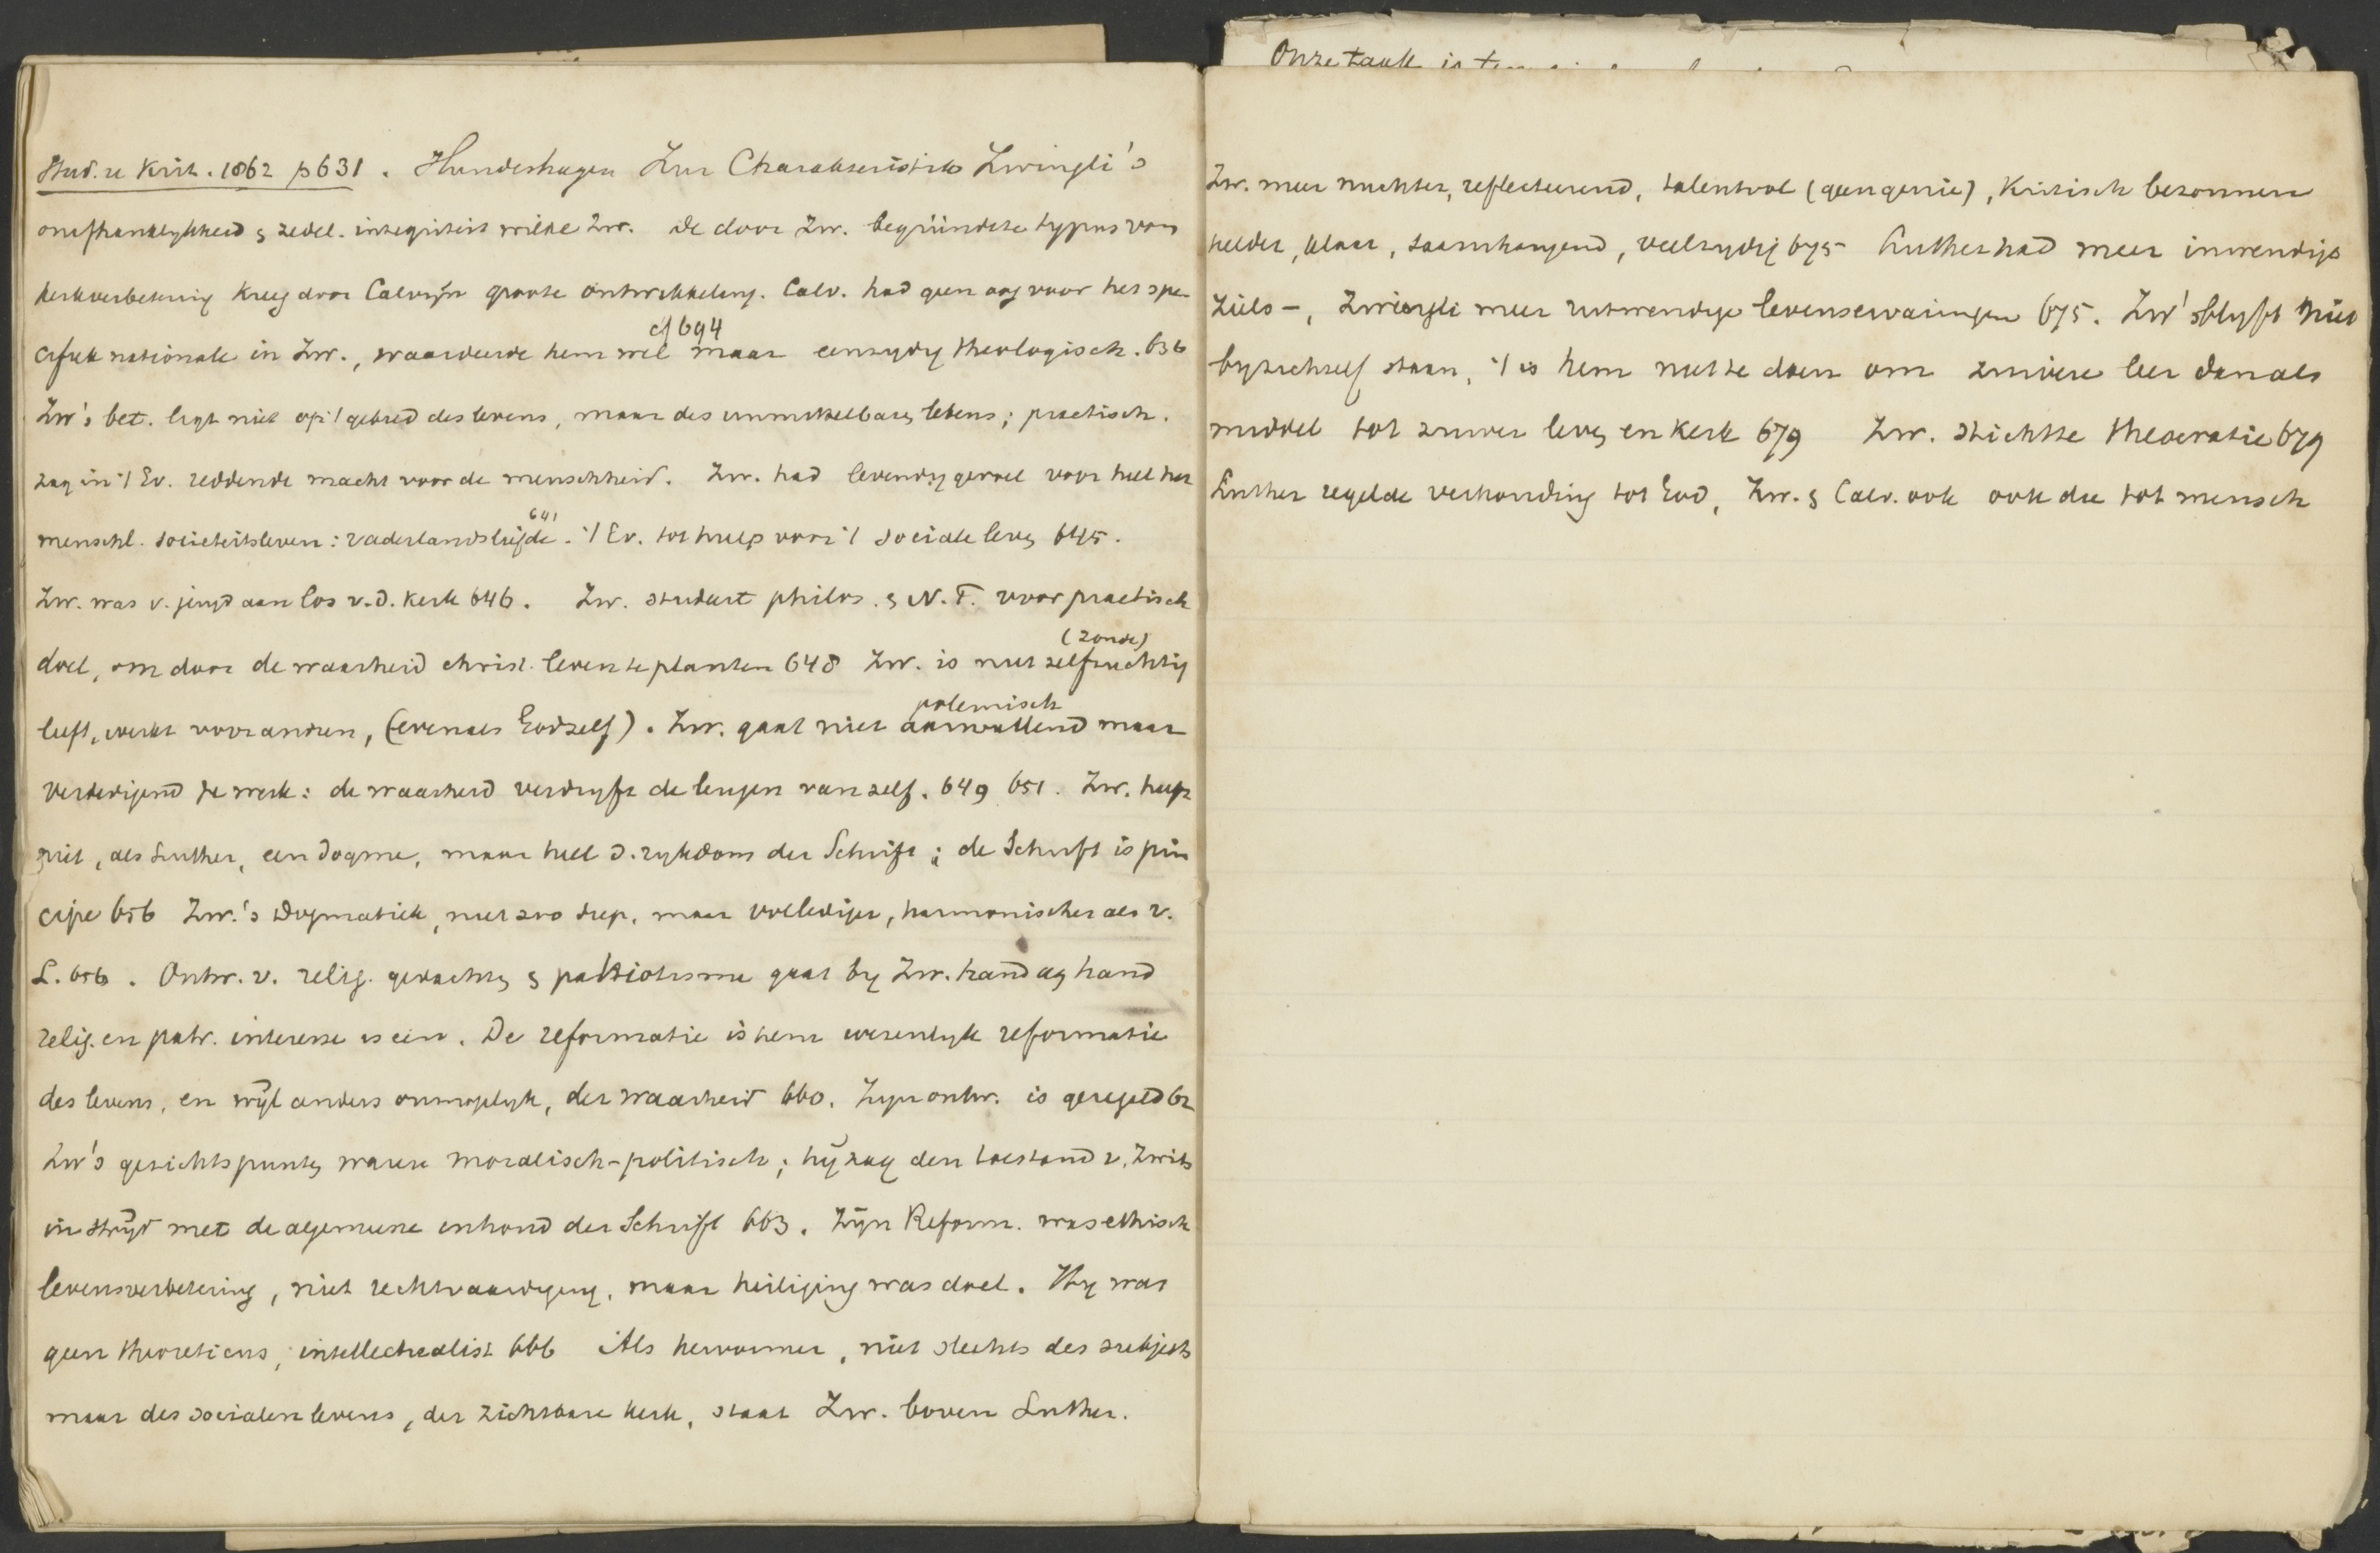 Onze taak is
Stud. u Krit. 1862 p 631. Hundeshagen Zur Charakteristik Zwingli's
onafhankelykheid & zedel. integriteit wilde Zw. de door Zw. begründete typus van
kerkverbetering kreeg door Calvijn groote ontwikkeling. Calv. had geen oog voor het spe
cifiek nationale in Zw., waardeerde hem wel maar eenzydig theologisch. 636
cf 694
Zw's bet. ligt niet op 't gebied des levens, maar des unmittelbaren lebens; practisch.
zag in 't Ev. reddende macht voor de menschheid. Zw. had levendig gevoel voor heel het
menschl. societeitsleven: vaderlandsliefde. 't Ev. tot hulp voor 't sociale leven 645.
641
Zw. was v. jeugd aan los v. d. kerk 646. Zw. studeert philos. & N. T. voor practisch
doel, om door de waarheid christ. leven te planten 648 Zw. is niet zelfzuchtig
(zonde)
leeft, werkt voor andren, (evenals God zelf). Zw. gaat niet aanvallend maar
polemisch
verdedigend te werk: de waarheid verdryft de leugen van zelf. 649 651. Zw. heeft
niet, als Luther, een dogme, maar heel d. rykdom der Schrift; de Schrift is prin
cipe 656 Zw.'s Dogmatiek, niet zoo diep, maar vollediger, harmonischer als v.
L. 656. Ontw. v. relig. gedachten & patriotisme gaat by Zw. hand aan hand
relig. en patr. interesse is een. De reformatie is hem wezenlyk reformatie
des levens, en wijl anders onmogelyk, der waarheid 660. Zyn ontw. is geregeld 62
Zw's gezichtspunten waren moralisch-politisch; hij zag den toestand v. Zwits
in strijd met de algemeene inhoud der Schrift 663. Zijn Reform. was ethisch
levensverbetering, niet rechtvaardiging, maar heiliging was doel. Hy was
geen theoreticus, intellectualist 666 Als hervormer, niet slechts des subjects
maar des socialen levens, der zichtbare kerk, staat Zw. boven Luther.
Zw. meer nuchter, reflecteerend, talentvol (geen genie), kritisch bezonnen
helder, klaar, saamhangend, veelzydig 675 Luther had meer inwendige
ziels-, Zwingli meer uitwendige levenservaringen 675. Zw' blyft niet
by zichzelf staan, 't is hem niet te doen om zuivere leer dan als
middel tot zuiver leven en kerk 679 Zw. stichtte theocratie 679
Luther regelde verhouding tot God, Zw. & Calv. ook ook die tot mensch